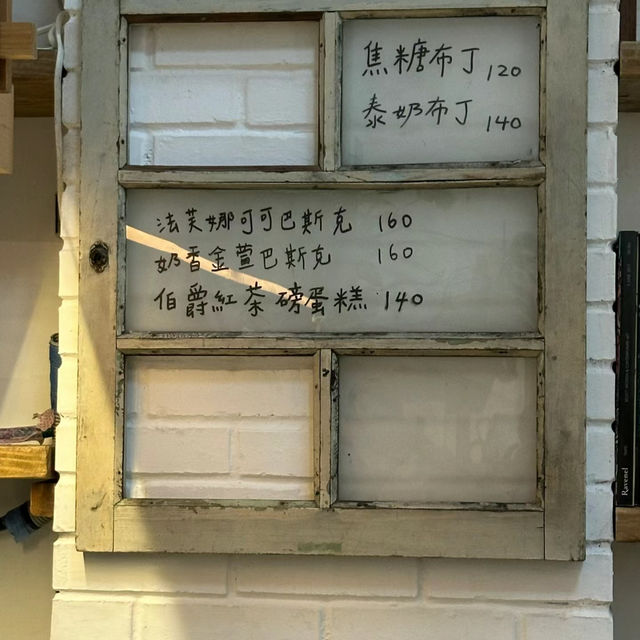 焦糖布丁 120
泰奶布丁 140
法芙娜可可巴斯克 160
奶香金萱巴斯克 160
伯爵紅茶磅蛋糕 140
Ravenel